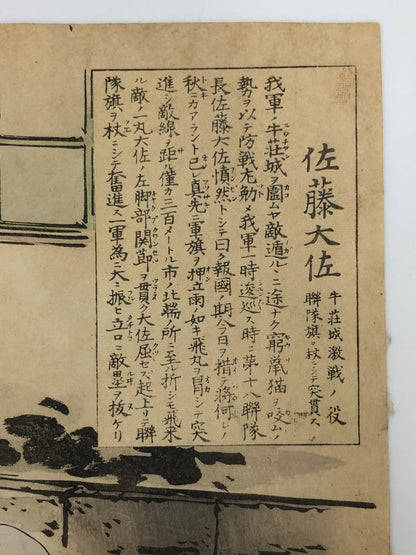 佐藤大佐
牛荘城激戦ノ役
聯隊旗ヲ杖ニシテ突貫ス
我軍ノ牛荘城ヲ圍ムヤ敵遁ルヽニ途ナク窮鼠猫ヲ咬ムノ
勢ヲ以テ防戦尤勉メ我軍一時逡巡ス時ニ第十八聯隊
長佐藤大佐憤然トシテ曰ク報國ノ期今日ヲ措テ将何レノ
秋ニカアラント已レ真先ニ軍旗ヲ押立雨ノ如キ飛丸ヲ冒シテ突
進シ敵線ヲ距ル僅カ三百メートル市ノ北端所ニ至ル折シモ飛来
ル敵ノ一丸大佐ノ左脚部関節ヲ貫ク大佐屈セズ起上リテ聯
隊旗ヲ杖ニシテ奮進ス一軍為ニ大ニ振ヒ立口ニ敵塁ヲ抜ケリ